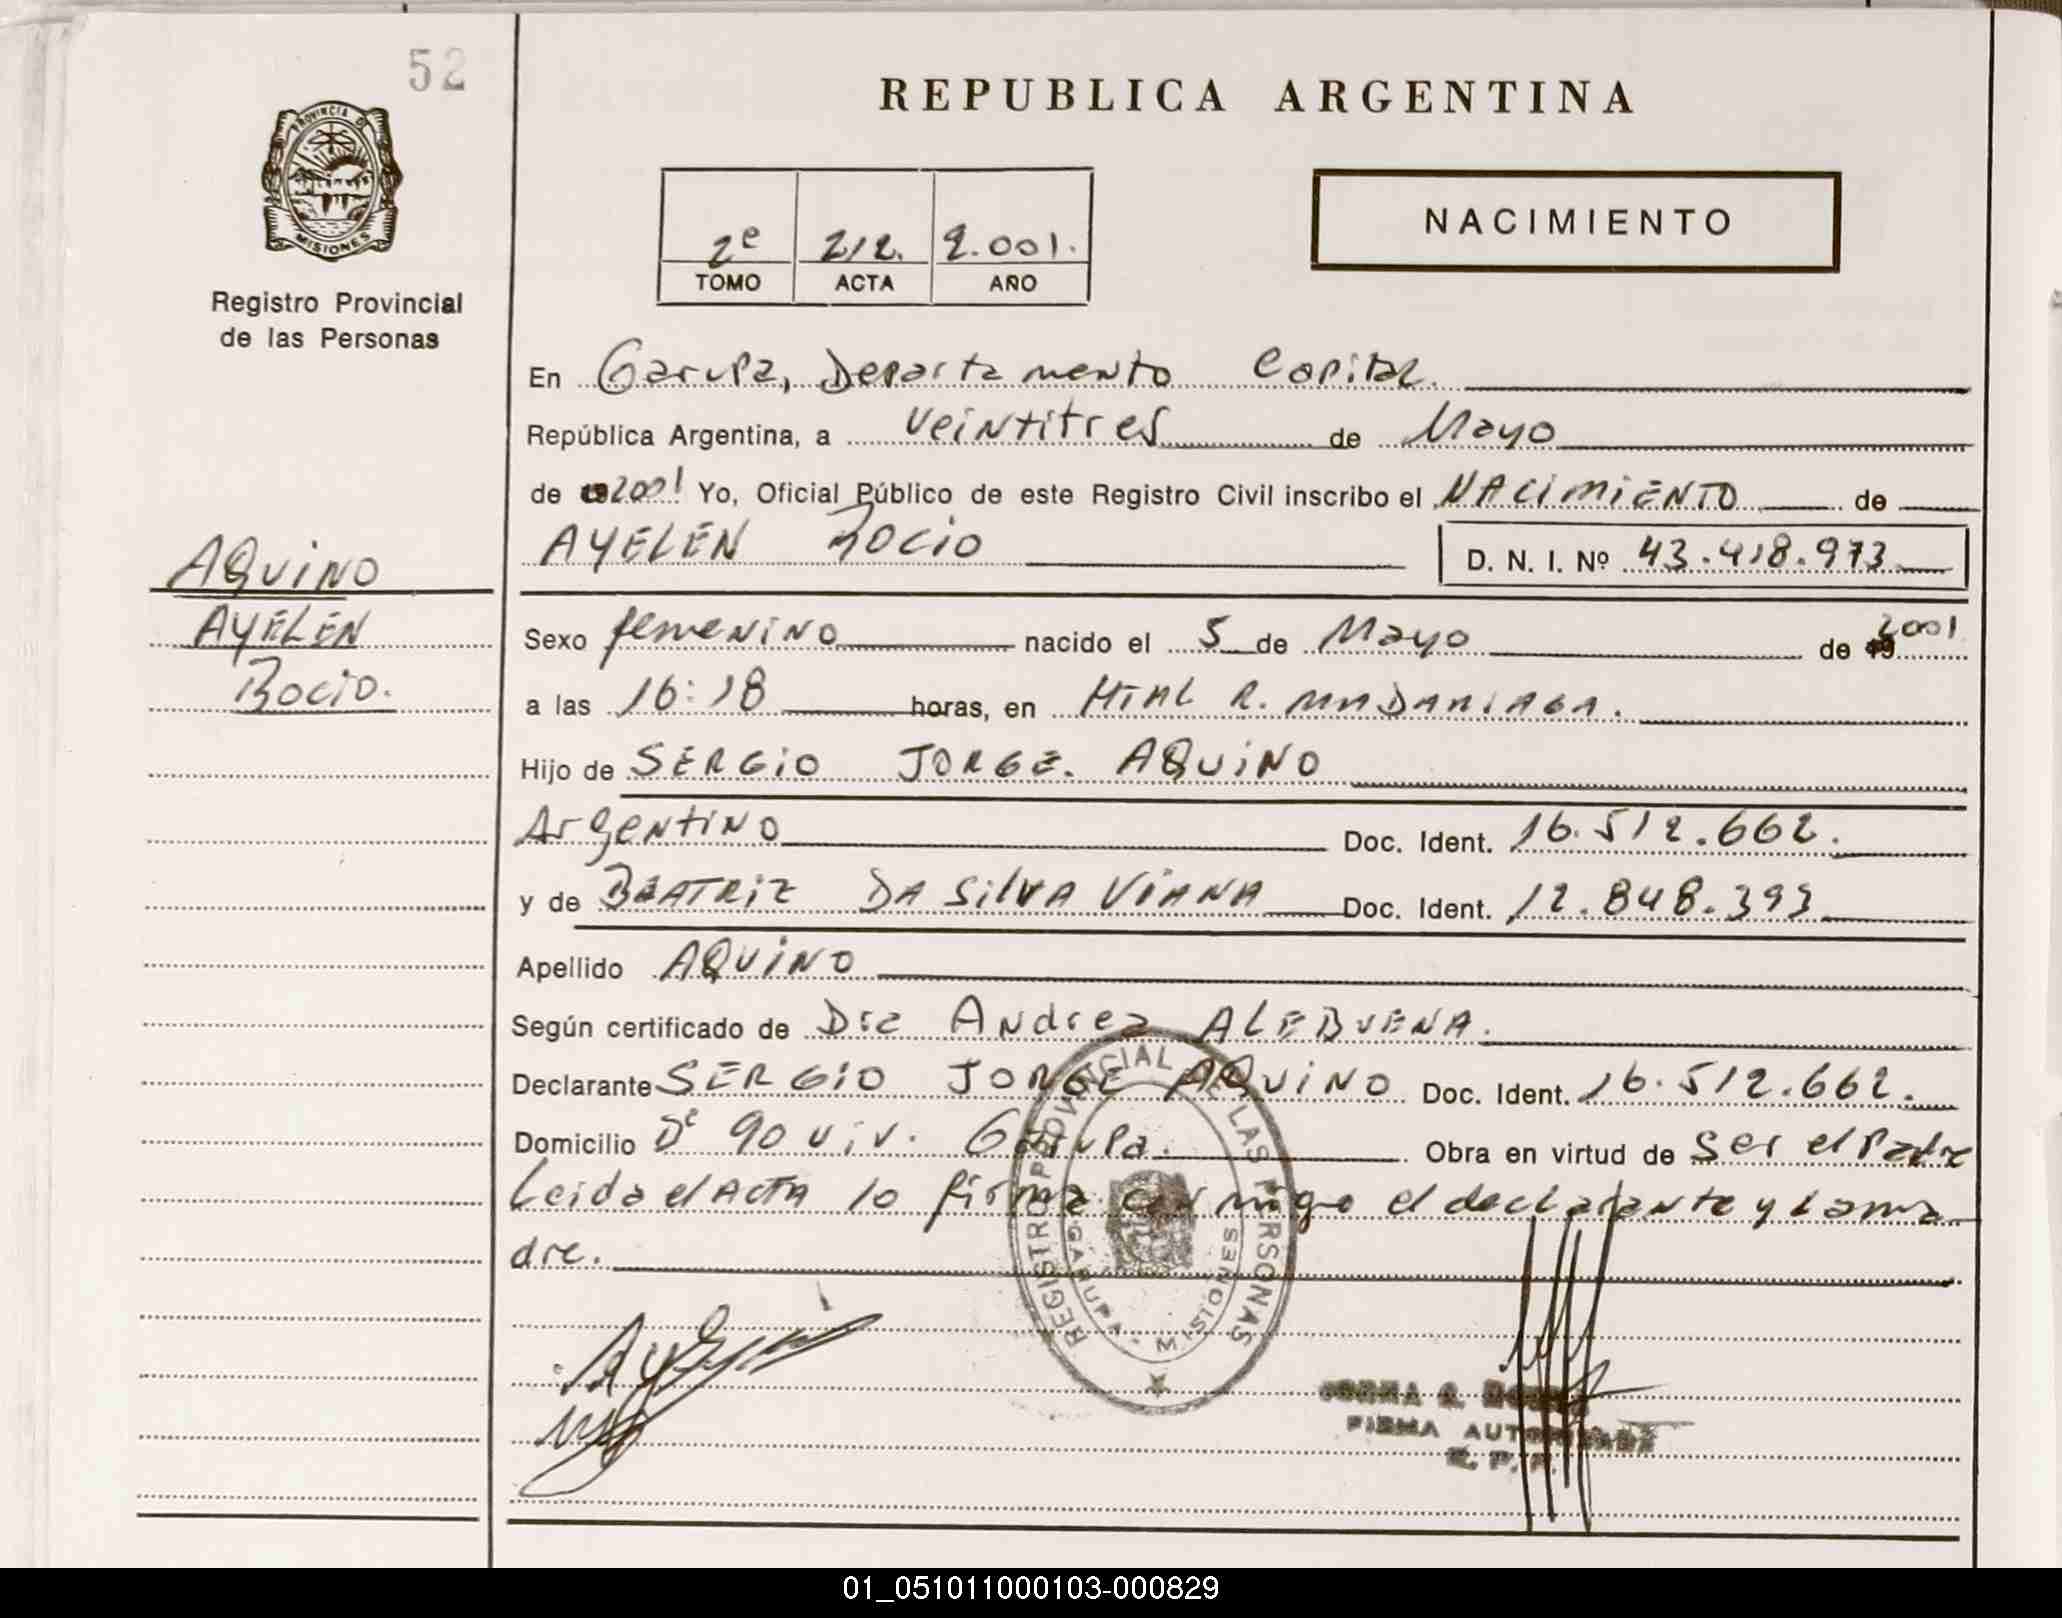 52
REPUBLICA ARGENTINA
PROVINCIA D
MISIONES
Registro Provincial
de las Personas
2e 212. 2.001.
TOMO ACTA AÑO
NACIMIENTO
En Garupa, Departamento Capital.
República Argentina, a veintitres de Mayo
de 2001 Yo, Oficial Público de este Registro Civil inscribo el NACIMIENTO de
AYELEN ROCIO D. N. I. Nº 43.418.973
AQUINO
AYELEN
ROCIO.
Sexo femenino nacido el 5 de Mayo de 2001
a las 16:18 horas, en HTAL R. MADARIAGA.
Hijo de SERGIO JORGE. AQUINO
Argentino Doc. Ident. 16.512.662.
y de BEATRIZ DA SILVA VIANA Doc. Ident. 12.848.393
Apellido AQUINO
Según certificado de Dra Andrea ALEBUENA.
Declarante SERGIO JORGE AQUINO Doc. Ident. 16.512.662.
Domicilio Bº 90 viv. Garupa. Obra en virtud de Ser el Padre
Leida el ACTA lo firma conmigo el declarante y la ma
dre.
REGISTRO PROVINCIAL DE LAS PERSONAS
GARUPA - MISIONES
FIRMA AUTORIZADA
R. P. P.
01_051011000103-000829